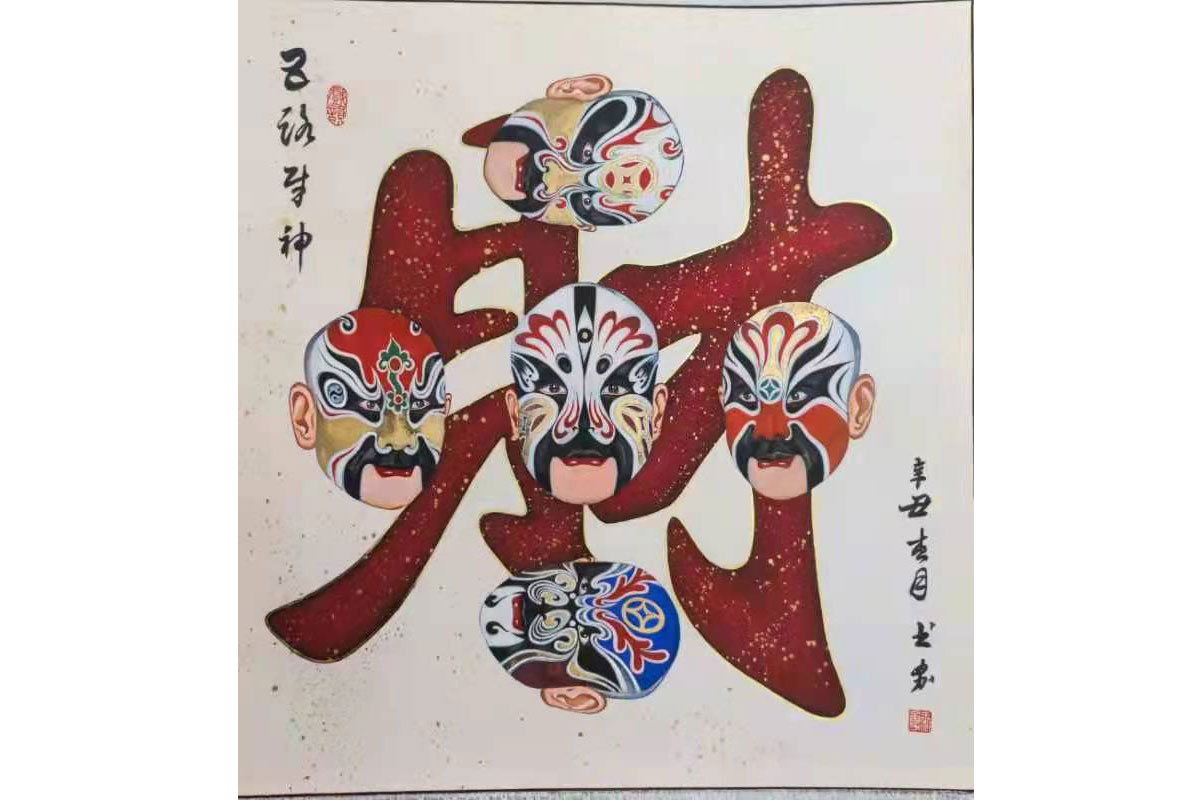 五路财神
财
辛丑春月